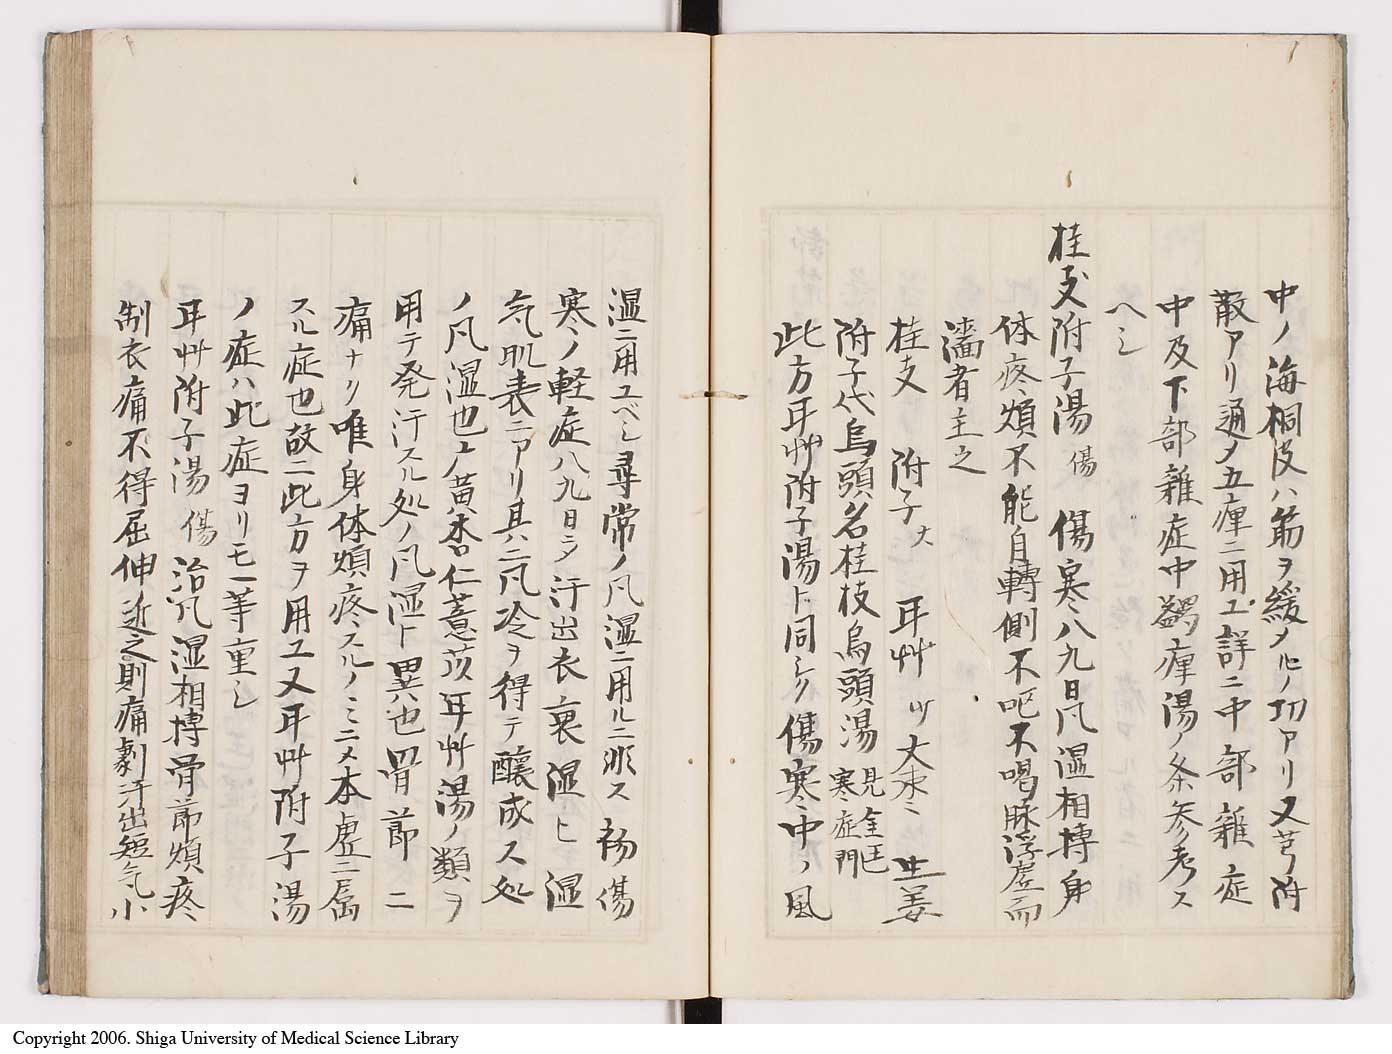 中ノ海桐皮ハ筋ヲ緩メルノ功アリ又芎附
散アリ通メ五痺ニ用ユ詳ニ中部雜症
中及下部雜症中蠲痺湯ノ条参考ス
ヘシ
桂支附子湯 傷 傷寒八九日凡湿相摶身
体疼煩不能自轉側不呕不喝脉浮虚而
濇者主之
桂支 附子大 耳艸 ツ 大枣 生姜
附子代烏頭名桂枝烏頭湯 見金匞寒症門
此方耳艸附子湯ト同シク傷寒中ノ風
湿ニ用ユベシ尋常ノ凡湿ニ用ルニ非ス傷
寒ノ軽症八九日ニ〆汗出衣裏湿ヒ湿
气肌表ニアリ其ニ凡冷ヲ得テ醸成ス処
ノ凡湿也故黄杏仁薏苡耳艸湯ノ類ヲ
用テ発汗スル処ノ凡湿ト異也骨節ニ
痛ナリ唯身体煩疼スルノミニメ本虚ニ属
スル症也故ニ此方ヲ用ユ又耳艸附子湯
ノ症ハ此症ヨリモ一等重シ
耳艸附子湯 傷 治凡湿相摶骨節煩疼
制衣痛不得屈伸近之則痛劇汗出短气小